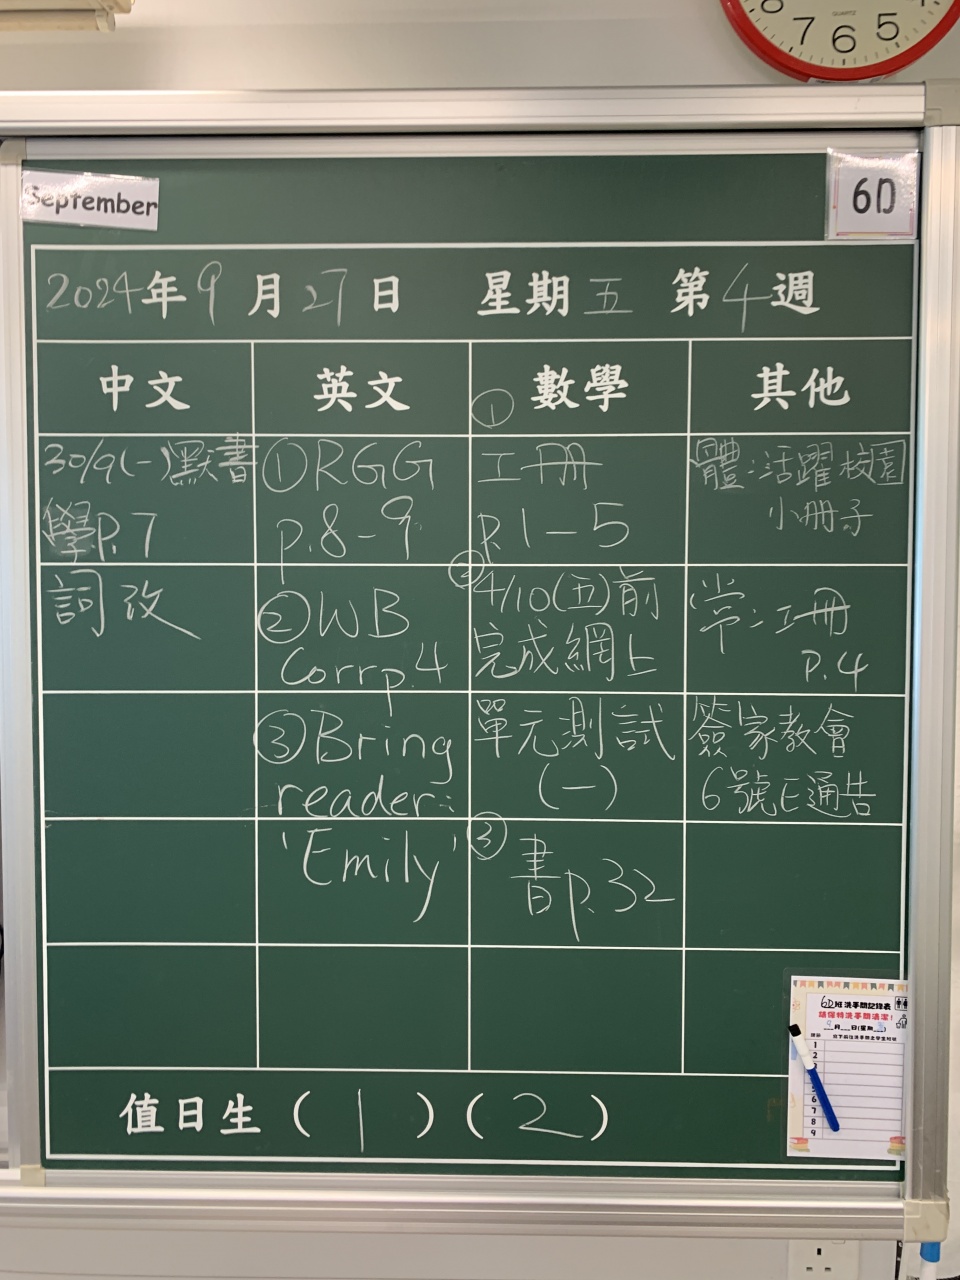 7 6 5
QUARTZ
September
6D
2024年9月27日 星期五 第4週
中文 英文 數學 其他
①
30/9(一)默書
學P.7
詞改
①RGG
p.8-9
②WB
Corrp.4
③Bring
reader:
'Emily'
工冊
P.1-5
②
4/10(五)前
完成網上
單元測試
(一)
③
書p.32
體:活躍校園
小冊子
常:工冊
P.4
簽家教會
6號E通告
6D班洗手間記錄表
請保持洗手間清潔!
月 日(星期 )
1
2
6
7
8
9
值日生(1)(2)